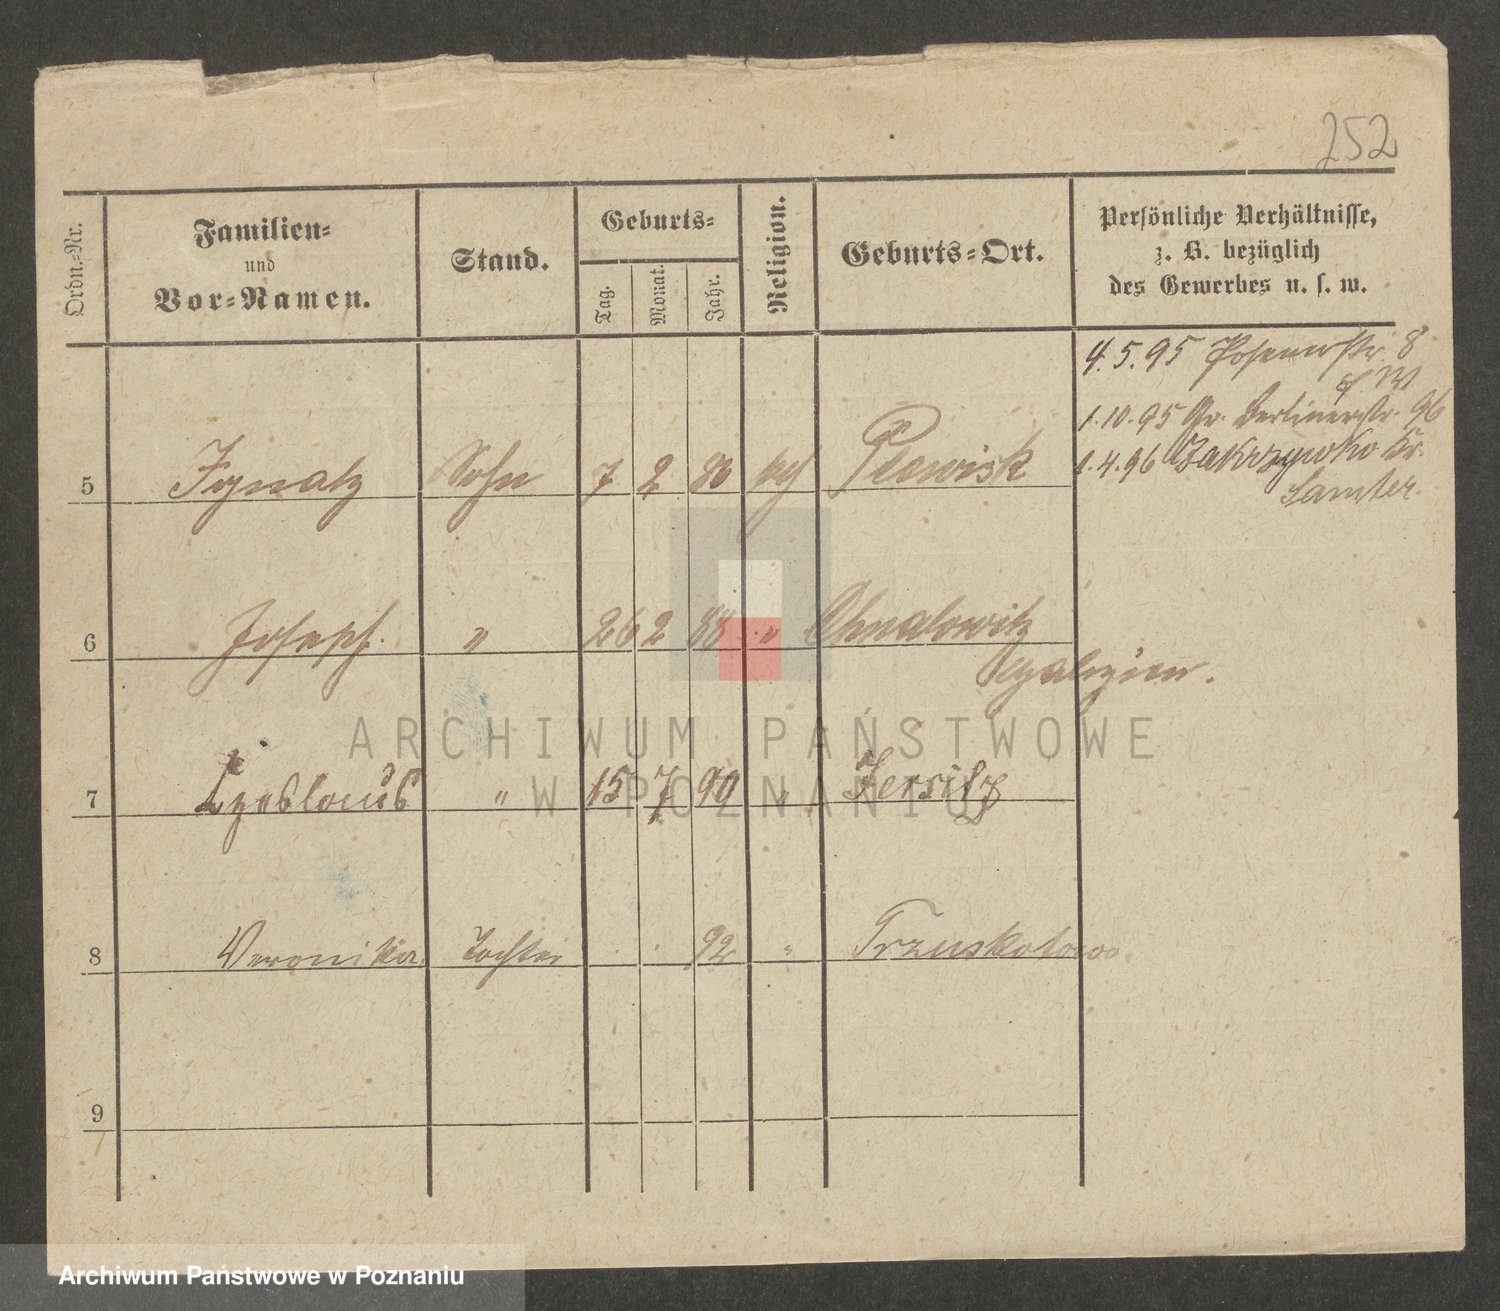 252
Ordn.-Nr.
Familien-
und
Vor-Namen.
Stand.
Geburts-
Tag.
Monat.
Jahr.
Religion.
Geburts-Ort.
Persönliche Verhältnisse,
z. B. bezüglich
des Gewerbes u. s. w.
4.5.95 Posenerstr. 8
1.10.95 Gr. Berlinerstr. 96
1.4.96 Zakrzewko Kr.
Samter.
5 Ignatz Sohn 7 2 86 kth Plewisk
6 Joseph. " 26 2 88 "
7 Czeslaus " 15 7 90 " Jersitz
8 Veronika. Tochter 92 " Trzuskotowo.
9
ARCHIWUM PAŃSTWOWE
W POZNANIU
Archiwum Państwowe w Poznaniu